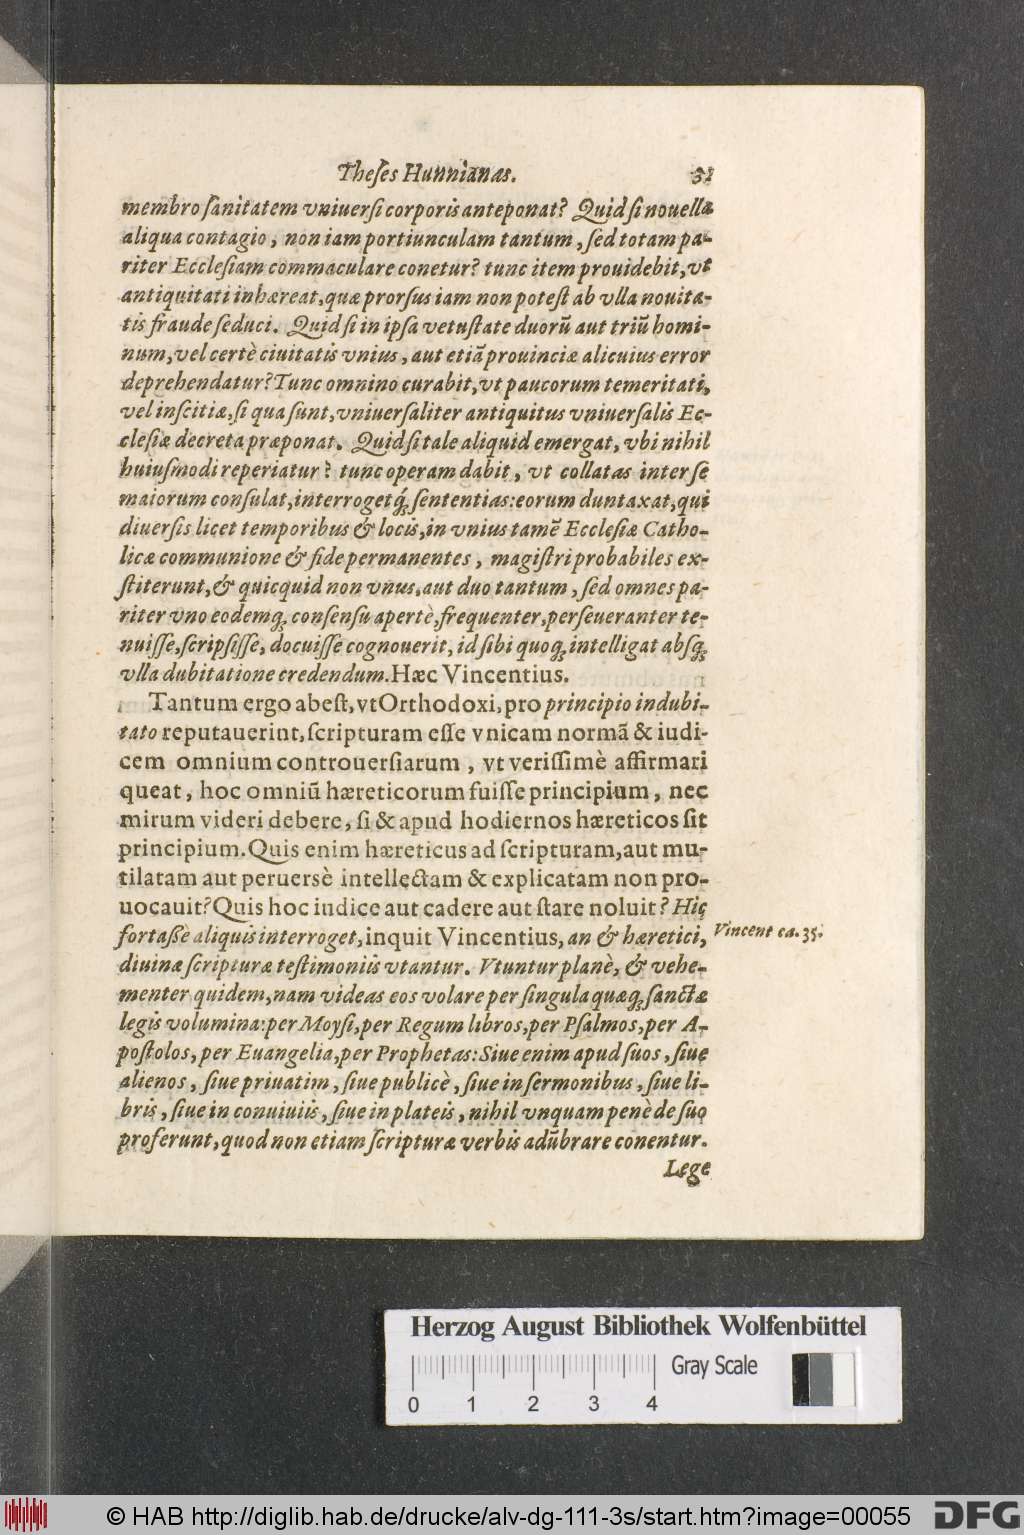 Theſes Hunnianas. 51
membro ſanitatem vniuerſi corporis anteponat? Quid ſi nouella
aliqua contagio, non iam portiunculam tantum, ſed totam pa-
riter Eccleſiam commaculare conetur? tunc item prouidebit, vt
antiquitati inhæreat, quæ prorſus iam non poteſt ab vlla nouita-
tis fraude ſeduci. Quid ſi in ipſa vetuſtate duorū aut triū homi-
num, vel certè ciuitatis vnius, aut etiā prouinciæ alicuius error
deprehendatur? Tunc omnino curabit, vt paucorum temeritati,
vel inſcitiæ, ſi qua ſunt, vniuerſaliter antiquitus vniuerſalis Ec-
cleſiæ decreta præponat. Quid ſi tale aliquid emergat, vbi nihil
huiuſmodi reperiatur? tunc operam dabit, vt collatas inter ſe
maiorum conſulat, interrogetq́; ſententias: eorum duntaxat, qui
diuerſis licet temporibus & locis, in vnius tamē Eccleſiæ Catho-
licæ communione & fide permanentes, magiſtri probabiles ex-
ſtiterunt, & quicquid non vnus, aut duo tantum, ſed omnes pa-
riter vno eodemq; conſenſu apertè, frequenter, perſeueranter te-
nuiſſe, ſcripſiſſe, docuiſſe cognouerit, id ſibi quoq; intelligat abſq;
vlla dubitatione credendum. Hæc Vincentius.
Tantum ergo abeſt, vt Orthodoxi, pro principio indubi-
tato reputauerint, ſcripturam eſſe vnicam normā & iudi-
cem omnium controuerſiarum, vt veriſſimè affirmari
queat, hoc omniū hæreticorum fuiſſe principium, nec
mirum videri debere, ſi & apud hodiernos hæreticos ſit
principium. Quis enim hæreticus ad ſcripturam, aut mu-
tilatam aut peruersè intellectam & explicatam non pro-
uocauit? Quis hoc iudice aut cadere aut ſtare noluit? Hic
fortaßè aliquis interroget, inquit Vincentius, an & hæretici,
Vincent ca. 35.
diuinæ ſcripturæ teſtimoniis vtantur. Vtuntur planè, & vehe-
menter quidem, nam videas eos volare per ſingula quæq; ſanctæ
legis volumina: per Moyſi, per Regum libros, per Pſalmos, per A-
poſtolos, per Euangelia, per Prophetas: Siue enim apud ſuos, ſiue
alienos, ſiue priuatim, ſiue publicè, ſiue in ſermonibus, ſiue li-
bris, ſiue in conuiuiis, ſiue in plateis, nihil vnquam penè de ſuo
proferunt, quod non etiam ſcripturæ verbis adūbrare conentur.
Lege
Herzog August Bibliothek Wolfenbüttel
Gray Scale
0 1 2 3 4
© HAB http://diglib.hab.de/drucke/alv-dg-111-3s/start.htm?image=00055
DFG